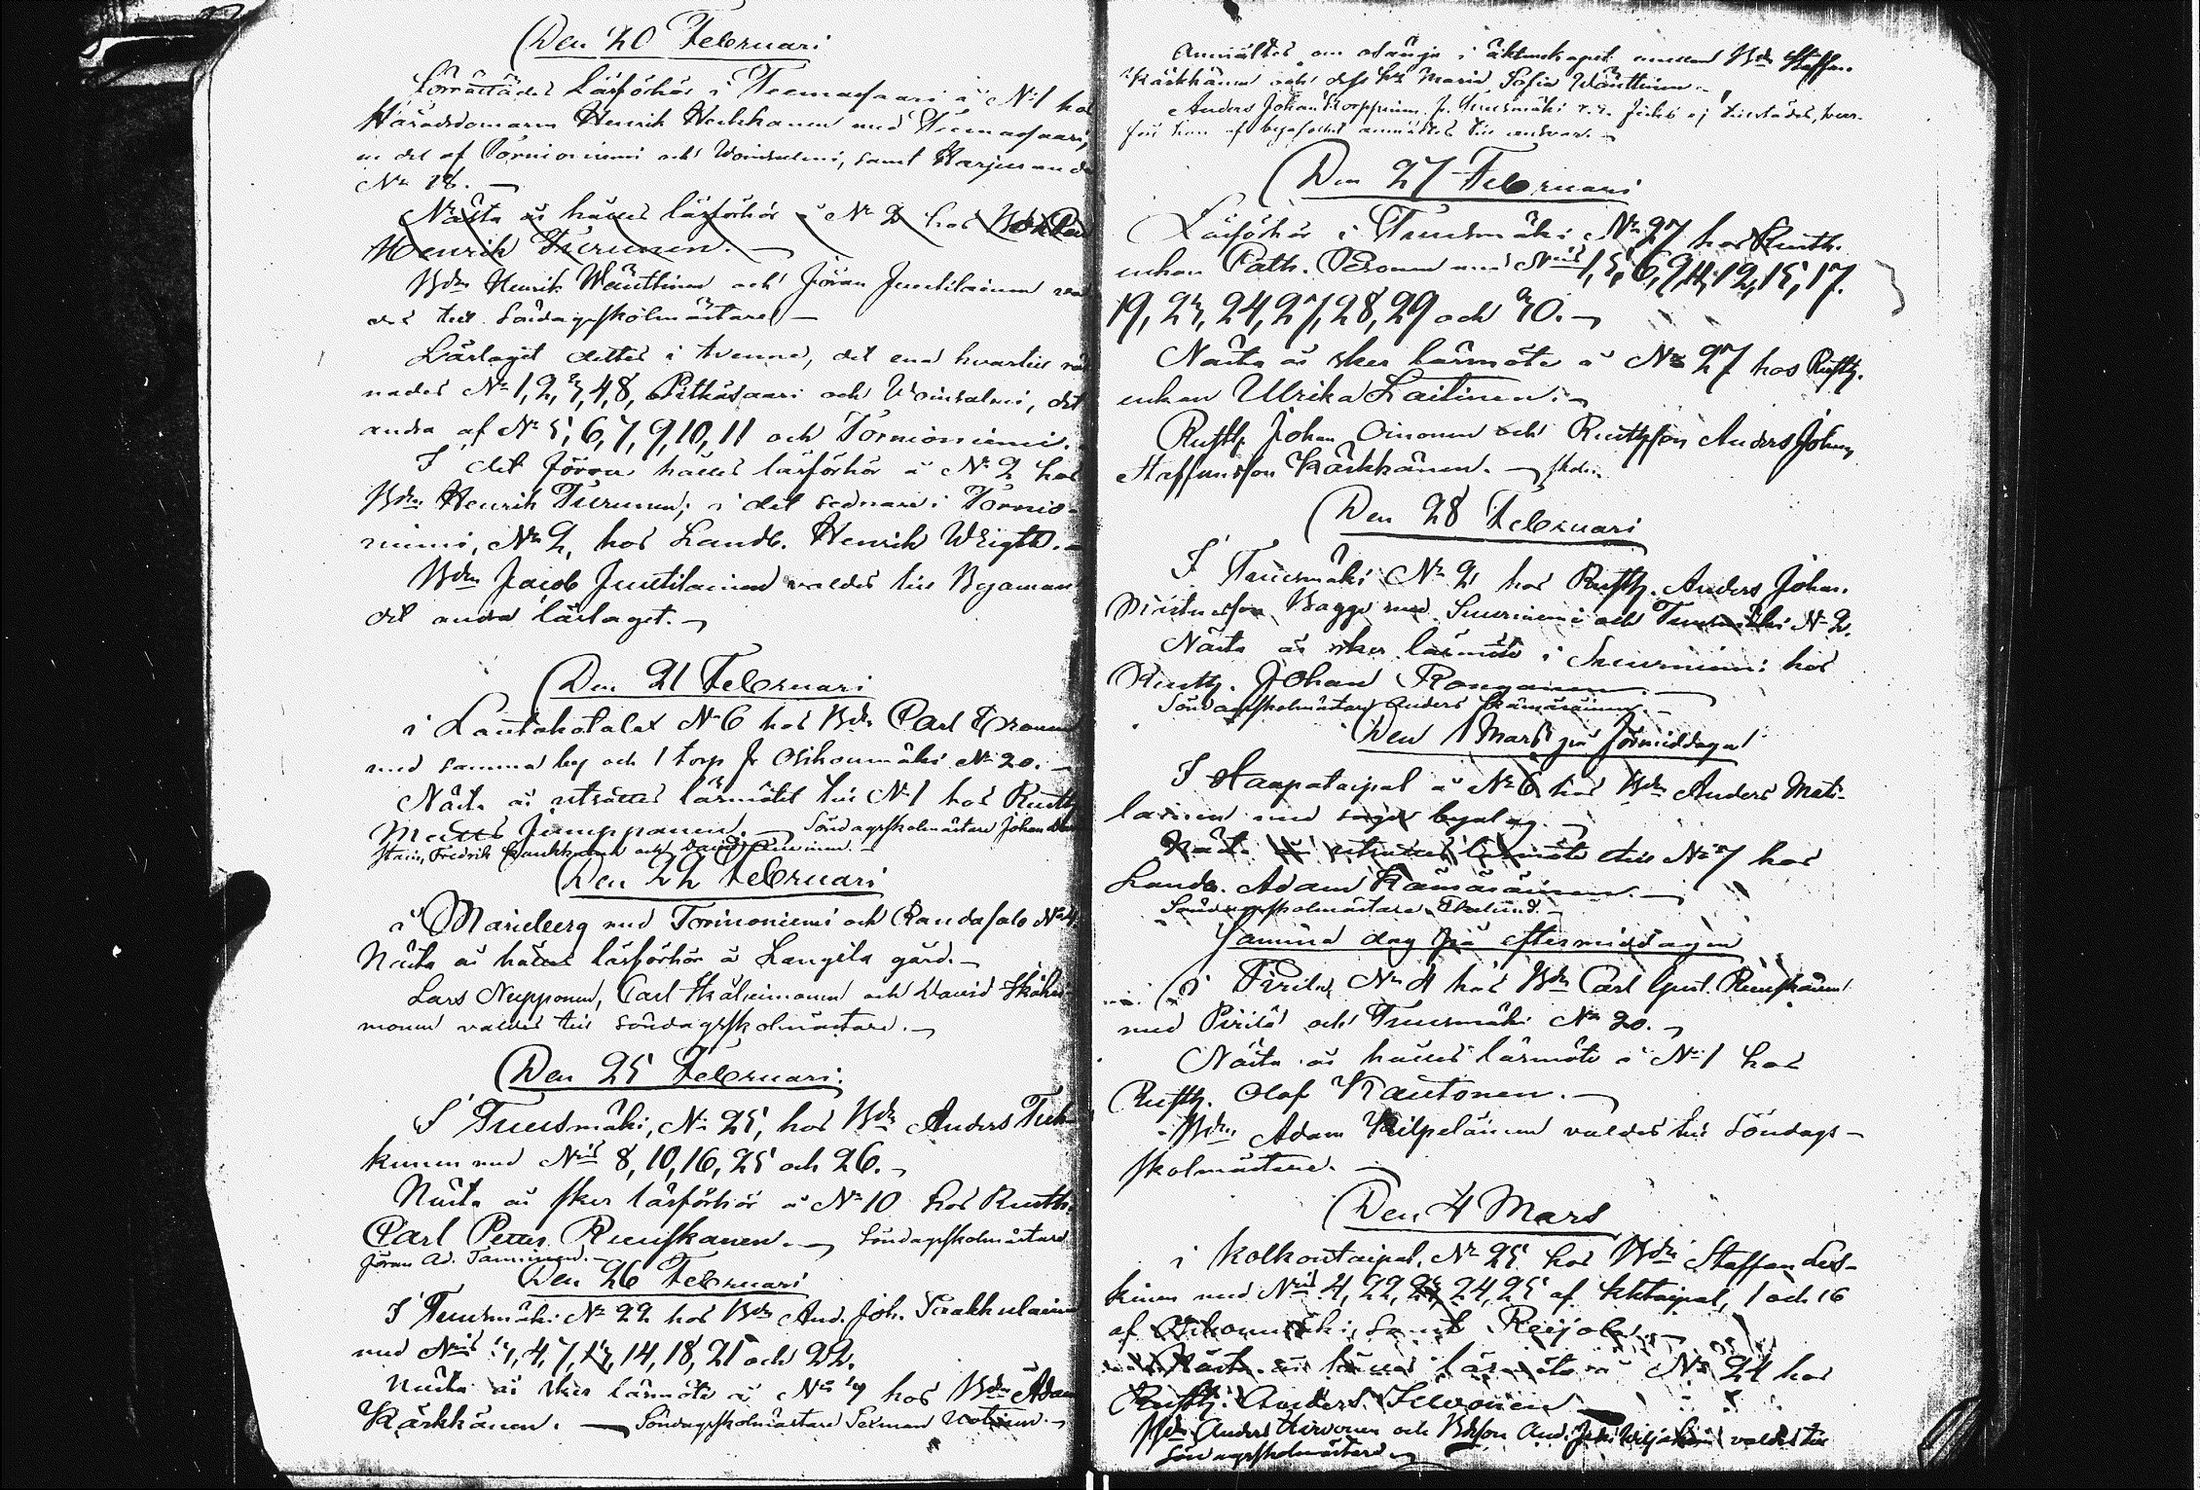 Den 20 Februari
Förrättades Läsförhör i Teemasaari å N:o 1 hos
Häradsdomaren Henrik Heikkanen med Teemassaari,
en del af Törnioniemi och Woinsalmi, samt Harjuranda
N:o 18.
Nästa år hålles läsförhör å N:o 2 hos Bonden
Henrik Turunen.
Bdn Henrik Wänttinen och Jöran Juutilainen
des till Söndagsskolmästare
Läslaget deltes i tvenne, det ena hvartill räk
nades N:o 1, 2, 3, 4, 8, Pitkäsaari och Woinsalmi, det
andra af N:o 5, 6, 7, 9, 10, 11 och Törnioniemi.
I det förra hålles läsförhör å N:o 2 hos
Bdn Henrik Turunen; i det sednare i Törnio-
niemi, N:o 2, hos Landb. Henrik Weigth.
Bdn Jacob Juutilainen valdes till Byaman
det andra läslaget.
Den 21 Februari
i Lautakotalax N:o 6 hos Bdn Carl
med samma by och 1 torp fr. Osikonmäki N:o 20.
Nästa år utsattes läsmötet till N:o 1 hos Rusth
Matts Jumppanen. Söndagsskolmästare Johan
Fredrik och David
Den 22 Februari
å Marieberg med Törnioniemi och Randasalo N:o 4
Nästa år hålles läsförhör å Langila gård.
Lars Nupponen, Carl och David
monen valdes till söndagsskolmästare.
Den 25 Februari.
I Tuusmäki, N:o 25, hos Bdn Anders Tuk-
kunen med N:ris 8, 10, 16, 25 och 26.
Nästa år sker läsförhör å N:o 10 hos Rusth.
Carl Petter Ruuskanen. Söndagsskolmästare
Jöran Ad. Tanninen.
Den 26 Februari
I Tuusmäki N:o 22 hos Bdn And. Joh.
med N:ris 3, 4, 7, 13, 14, 18, 21 och 22.
Nästa år sker läsmöte å N:o 3 hos Bdn Adam
Kärkkänen. Söndagsskolmästare Herman
Anmältes om osämja i äktenskapet emellan Bdn Staffan
Kärkkänen och dess h:u Maria Sofia Wänttinen.
Anders Johan Korppinen fr. Tuusmäki ej tillstädes, hvar-
för han af byafolket anmältes till ansvar.
Den 27 Februari
Läsförhör i Tuusmäki N:o 27 hos Rusth.
enkan Cath. Oinonen med N:ris 1, 5, 6, 9, 11, 12, 15, 17.
19, 23, 24, 27, 28, 29 och 30.
Nästa år sker läsmöte å N:o 27 hos Rusth.
enkan Ulrika Laitinen.
Rusth. Johan Oinonen och Rusthson Anders Johan
Staffansson Kärkkänen.
Den 28 Februari
I Tuusmäki N:o 2 hos Rusth. Anders Johan.
Bagge med Suurniemi och Tuusmäki N:o 2.
Nästa år sker läsmöte i Suurniemi hos
Rusth. Johan Ronganen.
Söndagsskolmästare Anders Kämäräinen.
Den 1 Mars på förmiddagen
I Haapataipal å N:o 6 hos Bdn Anders Mati-
lainen med byalag.
Nästa år utsattes läsmöte till N:o 7 hos
Landb. Adam Kämäräinen.
Söndagsskolmästare
Samma dag på eftermiddagen
i Pirilä, N:o 4 hos Bdn Carl Gust. Ruuskanen
med Pirilä och Tuusmäki N:o 20.
Nästa år hålles läsmöte å N:o 1 hos
Rusth. Olof Kautonen.
Bdn Adam Kilpeläinen valdes till Söndags-
skolmästare.
Den 4 Mars
i Kolkontaipal, N:o 25 hos Bdn Staffan Lus-
kinen med N:ris 4, 22, 23, 24, 25 af Kktaipal, 1 och 16
af Osikonmäki, samt Reijola.
Nästa år hålles läsmöte å N:o 24 hos
Rusth. Anders Sewonen.
Bdn Anders Hirvonen och Bdson And. Joh. valdes till
Söndagsskolmästare